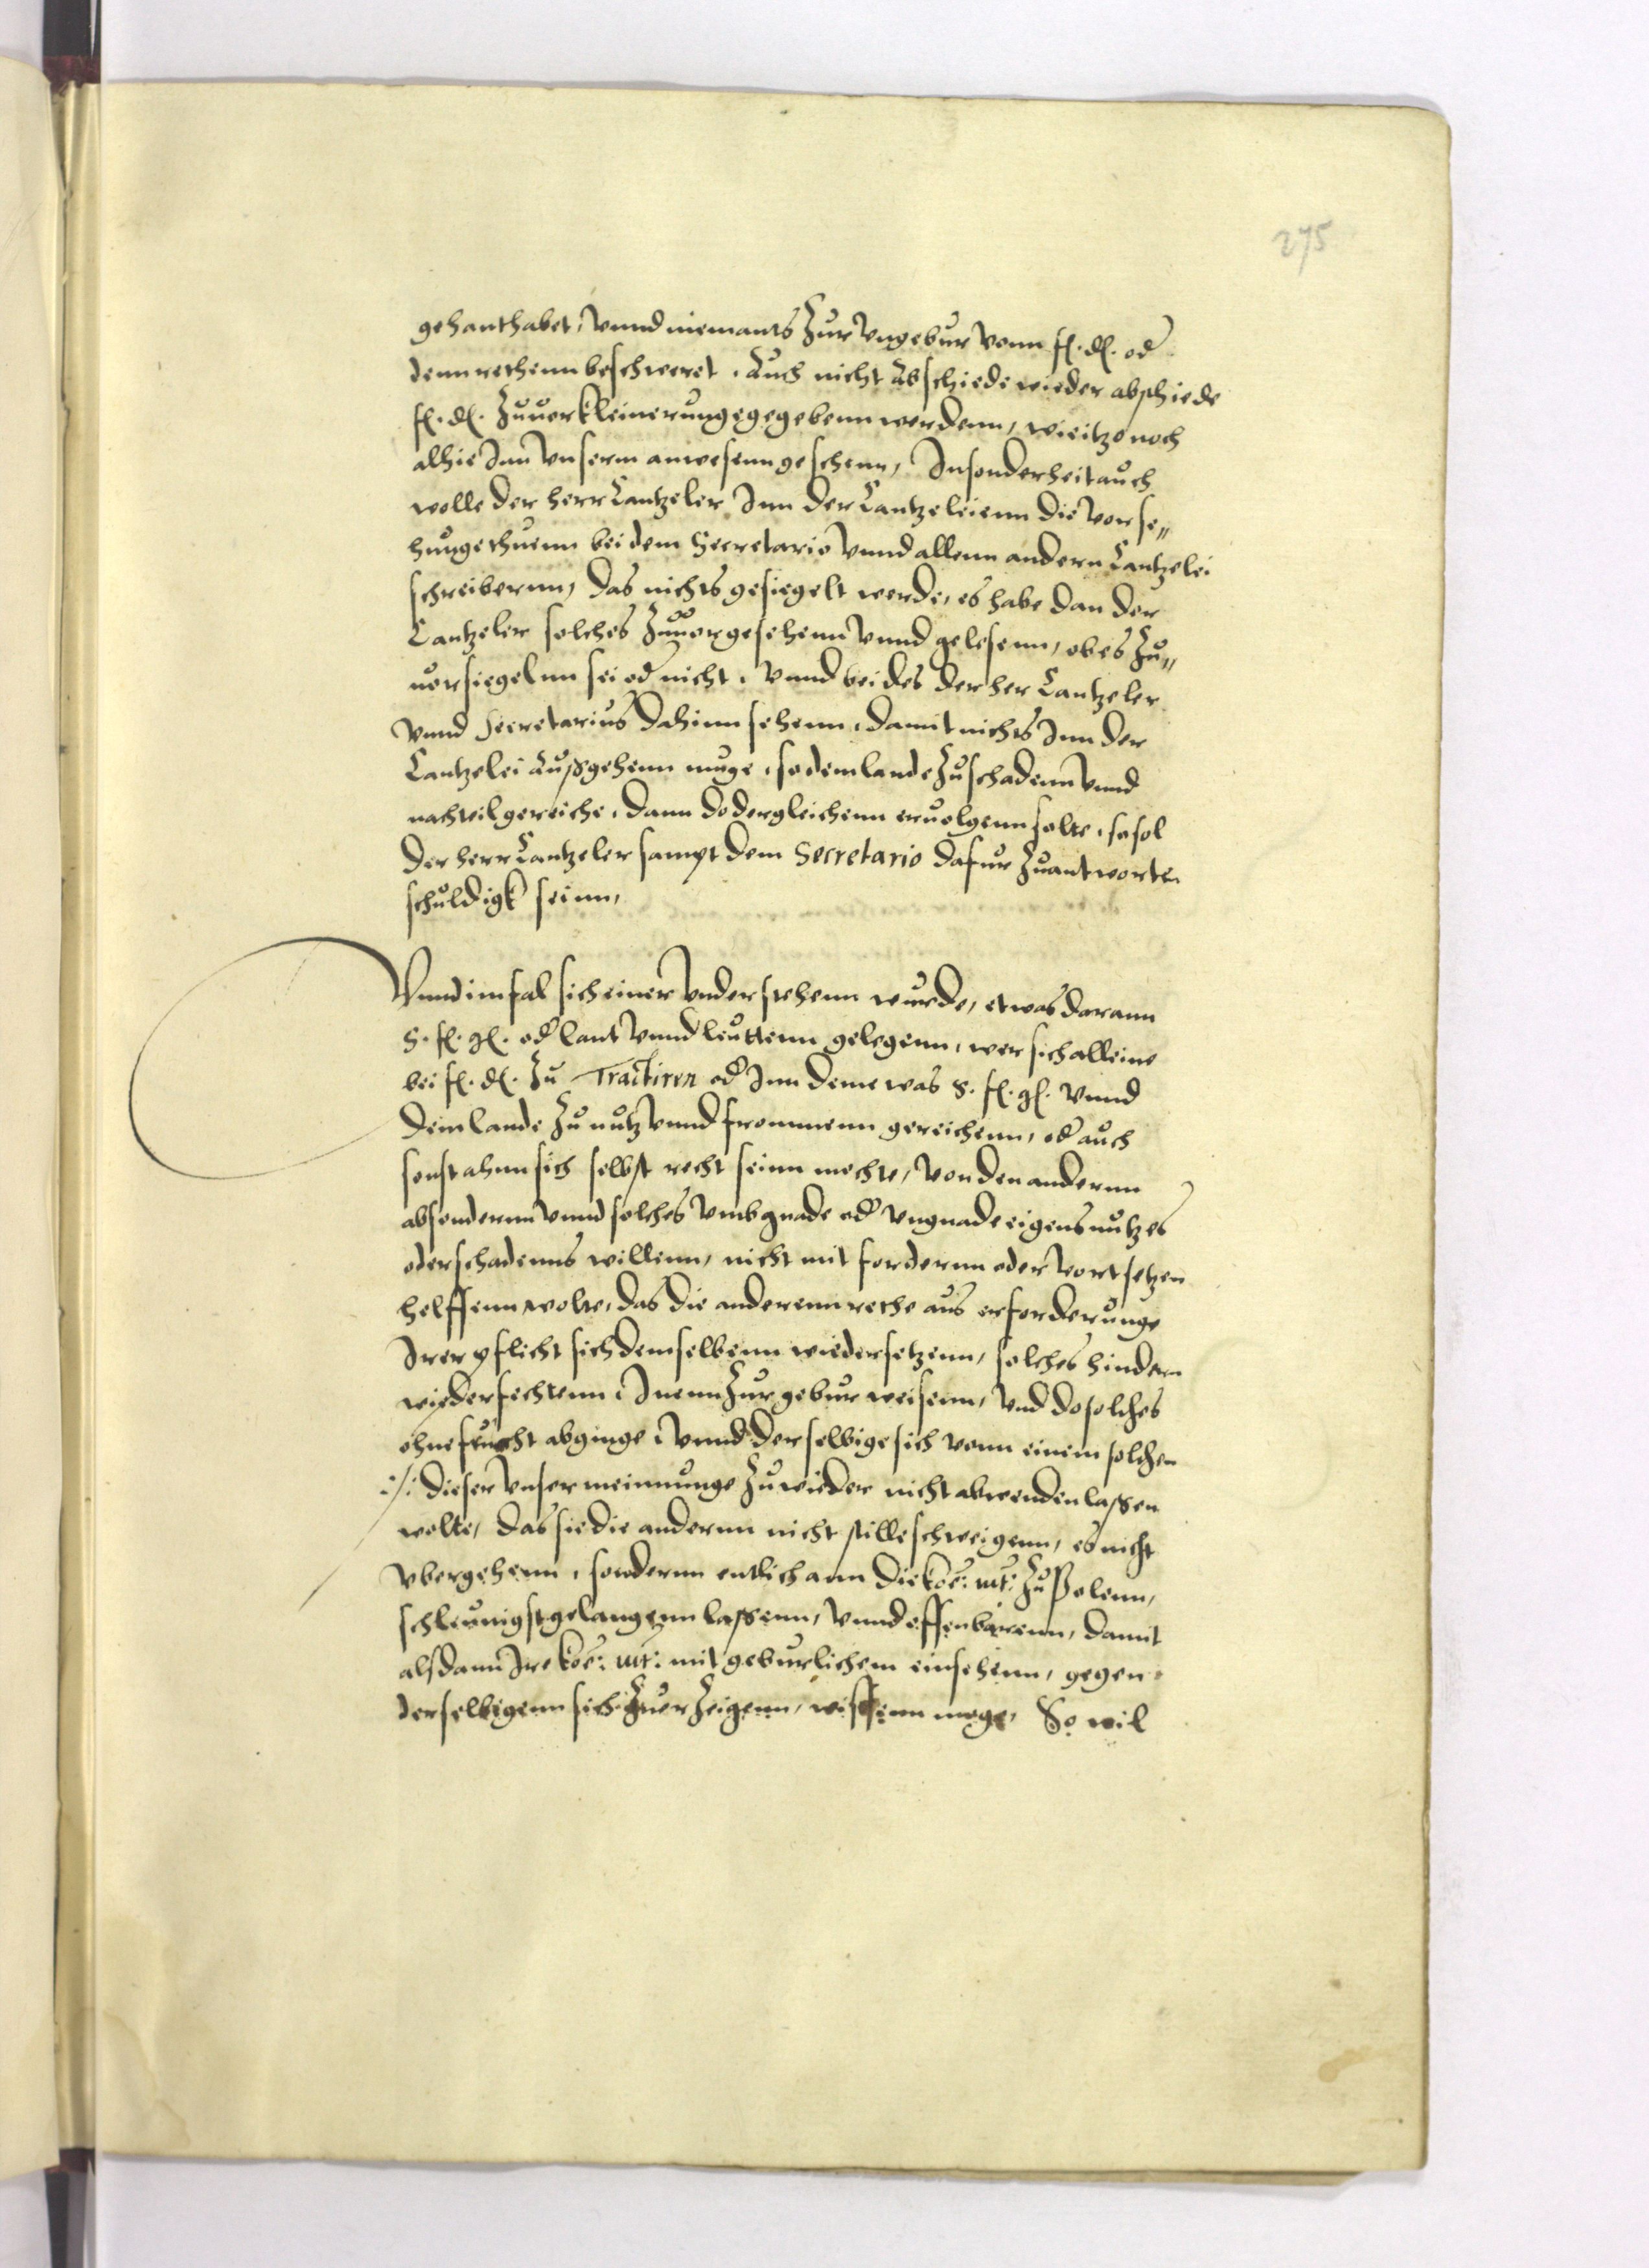 275
gehanthabet, vnnd niemants Zur Vngebur vonn fl. dl. od
denn rethenn beschweret, Auch nicht Abschiede wieder abschiede
fl. dl. Zuuorkleinerunge gegebenn werdenn, wie itzo noch
alhie Inn Vnserm anwesenn geschenn, Insonderheit auch
wolle der herr Cantzeler Inn der Cantzeleienn die vorse„
hunge thuenn bei dem Secretario vnnd allenn andern Cantzelei
schreibernn, das nichts gesiegelt werde, es habe dan der
Cantzeler solches Zuuor gesehenn vnnd gelesenn, ob es Zu„
uorsiegelnn sei od nicht, vnnd beides der her Cantzeler
vnnd Secretarius dahinn sehenn, damit nichts Inn der
Cantzelei Außgehenn muge, so dem lande Zu schadenn vnnd
nachteil gereiche, dann do dergleichenn eruolgenn solte, so sol
der herr Cantzeler sampt dem Secretario dafur Zuantworten
schuldigk seinn,
Vnnd im fal sich einer vnderstehenn wurde, etwas darann
S. fl. gl. od lant vnnd leuttenn gelegenn, wer sich alleine
bei fl. dl. Zu Tractiren od Inn deme was S. fl. gl. vnnd
dem lande Zu nutz vnnd frommenn gereichenn, od auch
sonst ahnn sich selbst recht seinn mochte, von den andernn
absondernn vnnd solches vmb gnade od vngnade eigens nutzes
oder schadenns willenn, nicht mit fordernn oder vort setzen
helffenn wolte, das die anderenn rethe aus erforderunge
Irer pflicht sich demselbenn wiedersetzenn, solches hindern
wiederfechtenn, Inenn Zur gebur weisenn, vnd do solches
ohne frucht abginge, vnnd derselbige sich vonn einem solchen
./. dieser Vnser meinnunge Zuwieder nicht abwenden lassen
wolte, das sie die andernn nicht stilleschweigenn, es nicht
vbergehenn, sondernn entlich ann die koe: mt: Zu Polenn,
schleunigst gelangenn lassenn, vnnd offenbarenn, damit
alsdann Ire koe: mt: mit geburlichem einsehenn, gegen
derselbigenn sich Zuerzeigenn, wissenn moge, So wil